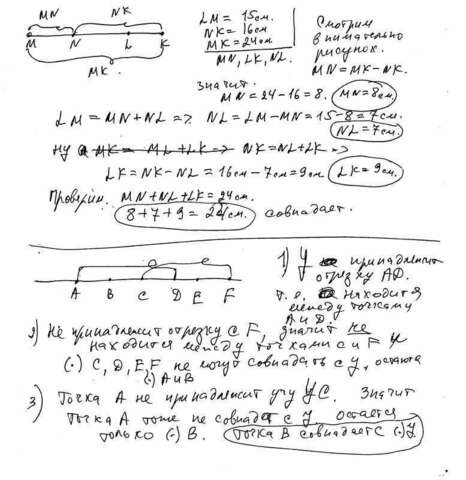 MN NK
M N L K
MK
LM = 15см.
NK = 16см
MK = 24см
MN, LK, NL.
Смотрим
внимательно
рисунок.
MN = MK - NK.
значит
MN = 24 - 16 = 8. MN = 8см.
LM = MN + NL => NL = LM - MN = 15 - 8 = 7см.
NL = 7см.
ну MK = ML + LK => NK = NL + LK =>
LK = NK - NL = 16см - 7см = 9см LK = 9см.
Проверим. MN + NL + LK = 24см.
8 + 7 + 9 = 24см. совпадает.
A B C D E F
1) У принадлежит
отрезку AD.
т.е. находится
между точками
A и D.
2) Не принадлежит отрезку CF, значит не
находится между точками C и F
(·) C, D, E F не могут совпадать с У, остаются
(·) A и B
3) Точка A не принадлежит лучу УС. Значит
Точка A тоже не совпадает с У, остается
только (·) B. Точка B совпадает с (·) У.